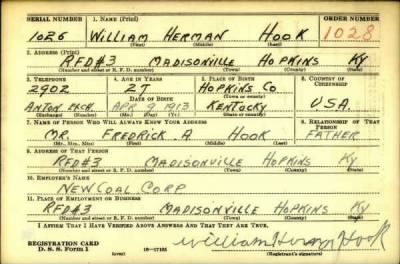 SERIAL NUMBER 1. NAME (Print) ORDER NUMBER
1026 WILLIAM HERMAN HOOK 1028
(First) (Middle) (Last)
2. ADDRESS (Print)
RFD#3 MADISONVILLE HOPKINS KY
(Number and street or R. F. D. number) (Town) (County) (State)
3. TELEPHONE 4. AGE IN YEARS 5. PLACE OF BIRTH 6. COUNTRY OF CITIZENSHIP
2902 27 HOPKINS CO.
DATE OF BIRTH (Town or county)
ANTON EXCH. APR 9 1913 KENTUCKY U.S.A.
(Exchange) (Number) (Mo.) (Day) (Yr.) (State or country)
7. NAME OF PERSON WHO WILL ALWAYS KNOW YOUR ADDRESS 8. RELATIONSHIP OF THAT PERSON
MR. FREDRICK A HOOK FATHER
(Mr., Mrs., Miss) (First) (Middle) (Last)
9. ADDRESS OF THAT PERSON
RFD#3 MADISONVILLE HOPKINS KY
(Number and street or R. F. D. number) (Town) (County) (State)
10. EMPLOYER'S NAME
NEW COAL CORP
11. PLACE OF EMPLOYMENT OR BUSINESS
RFD#3 MADISONVILLE HOPKINS KY
(Number and street or R. F. D. number) (Town) (County) (State)
I AFFIRM THAT I HAVE VERIFIED ABOVE ANSWERS AND THAT THEY ARE TRUE.
REGISTRATION CARD
D. S. S. Form 1 (over) 16-17105 William Herman Hook
(Registrant's signature)